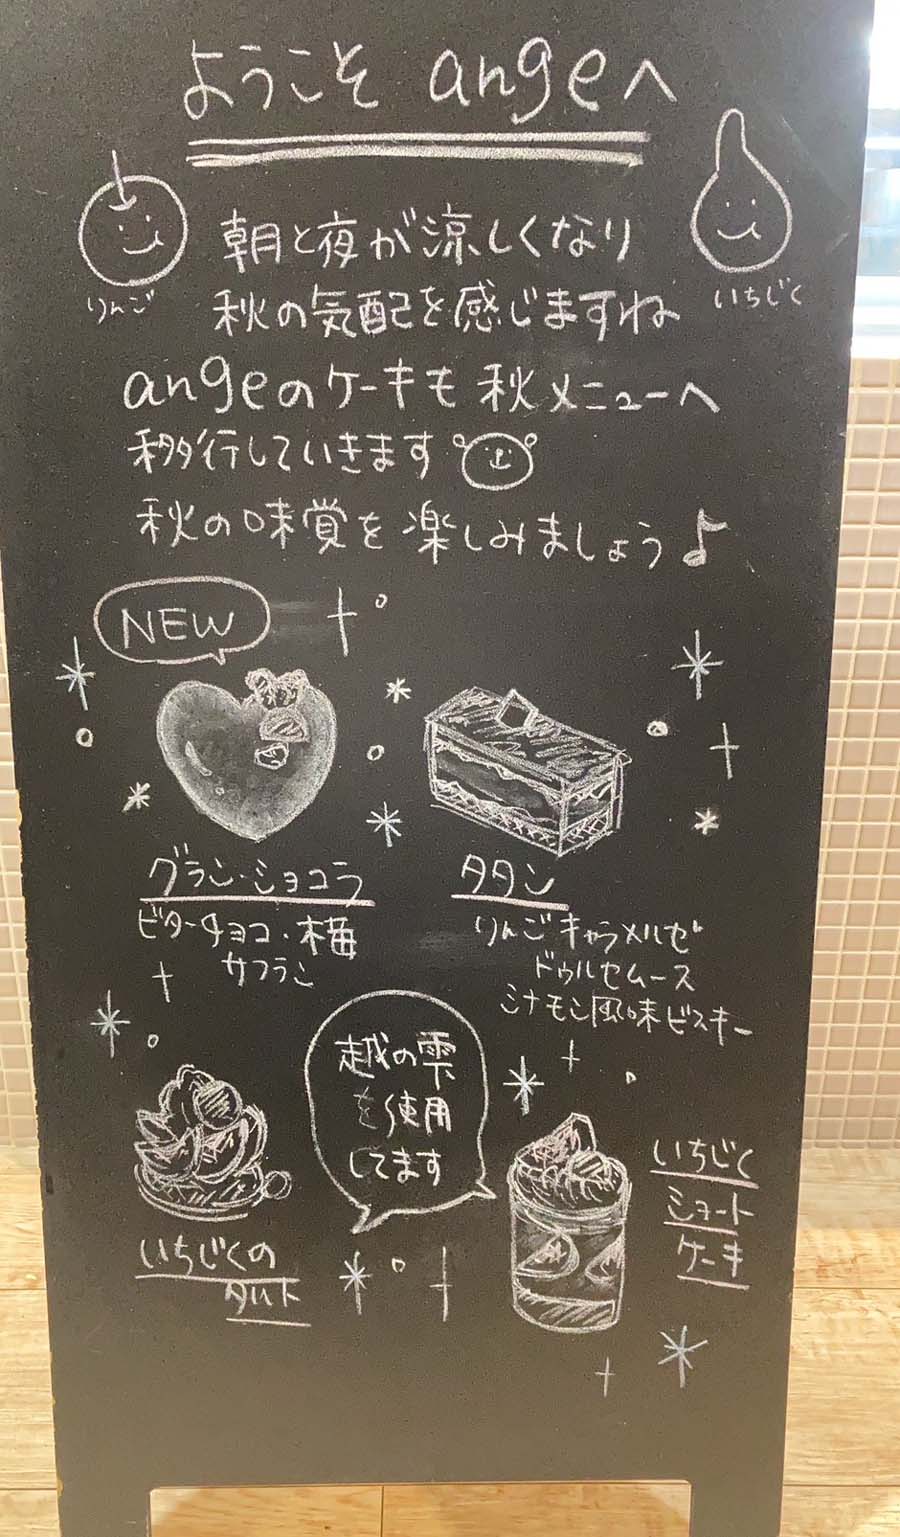 ようこそ angeへ
りんご
いちじく
朝と夜が涼しくなり
秋の気配を感じますね
angeのケーキも秋メニューへ
移行していきます
秋の味覚を楽しみましょう♪
NEW
グラン・ショコラ
ビターチョコ・梅
サフラン
タタン
りんごキャラメルゼ
ドゥルセムース
シナモン風味ビスキー
越の雫
を使用
してます
いちじくの
タルト
いちじく
ショート
ケーキ